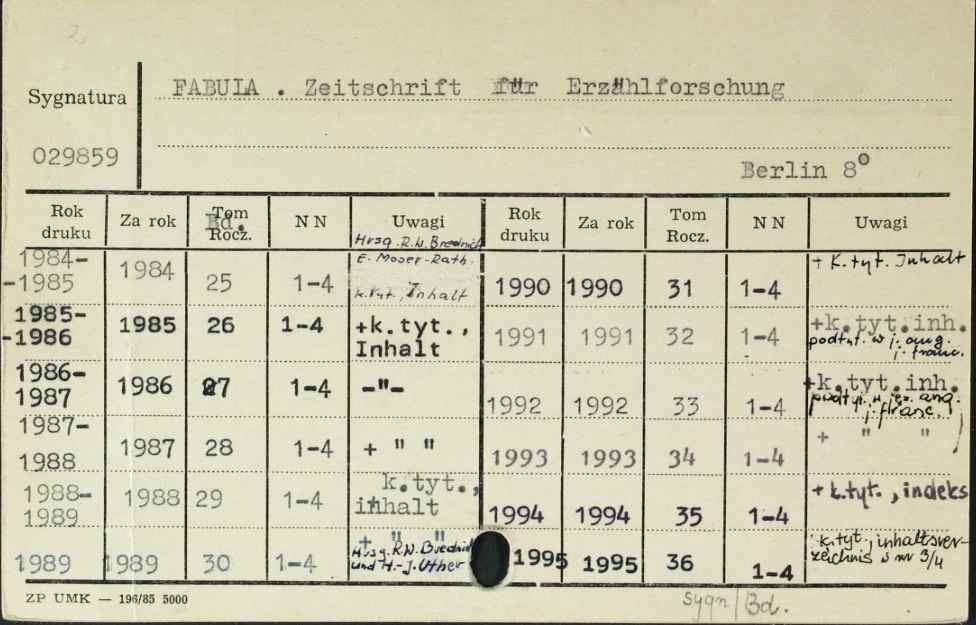 2,
Sygnatura
FABULA . Zeitschrift für Erzählforschung
029859
Berlin 8°
Rok druku Za rok Tom Bd. Rocz. N N Uwagi Rok druku Za rok Tom Rocz. N N Uwagi
Hrsg. R.W. Brednich
E. Moser-Rath.
1984-
-1985 1984 25 1-4 k.tyt., Inhalt 1990 1990 31 1-4 + K.tyt. Inhalt
1985-
-1986 1985 26 1-4 +k.tyt., Inhalt 1991 1991 32 1-4 +k.tyt.inh.
podtyt. w j. ang.
j. franc.
1986-
1987 1986 27 1-4 -"- 1992 1992 33 1-4 +k.tyt.inh.
podtyt. w jęz. ang.
j. franc.
1987-
1988 1987 28 1-4 + " " 1993 1993 34 1-4 + " "
1988-
1989 1988 29 1-4 + k.tyt., inhalt 1994 1994 35 1-4 + k.tyt., indeks
1989 1989 30 1-4 + " " 1995 1995 36 1-4 k.tyt., inhaltsver-
zeichnis s nr 3/4
Hrsg. R.W. Brednich
und H.-J. Uther
ZP UMK — 196/85 5000
sygn/Bd.